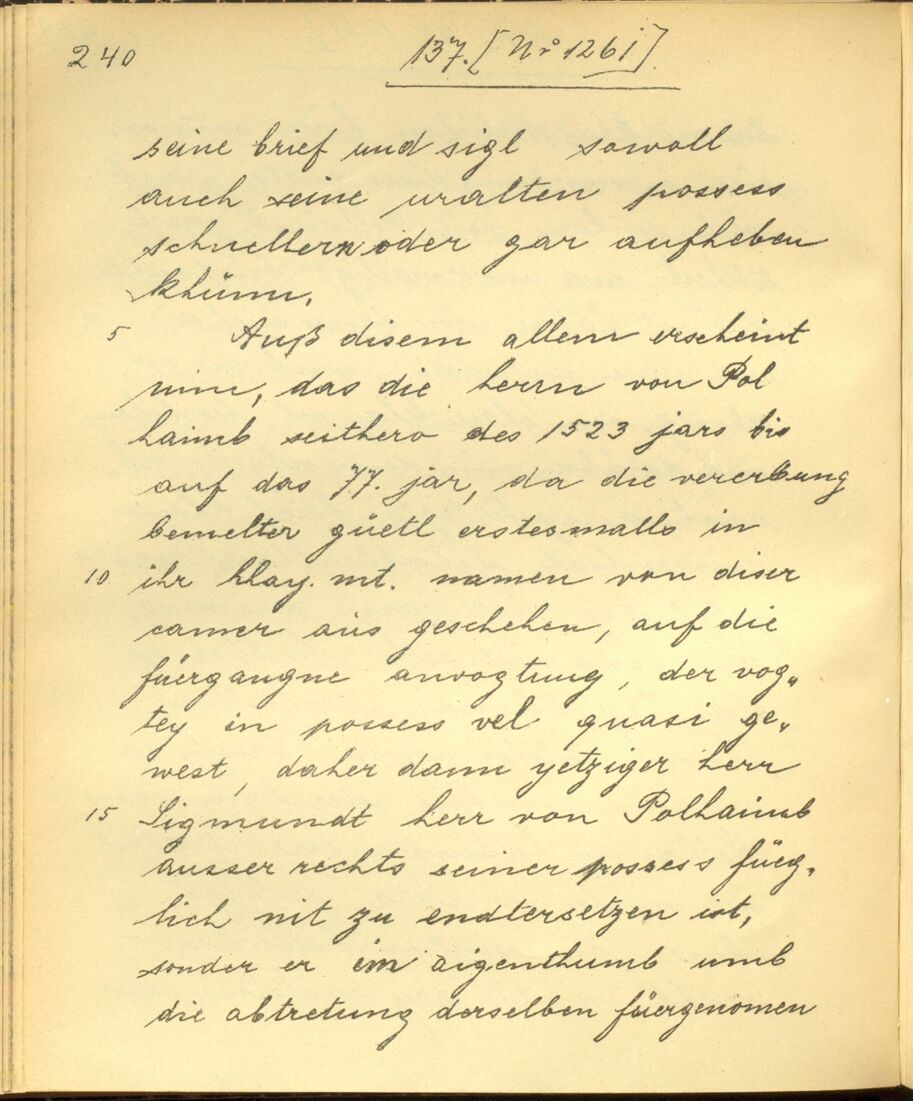 240 137. [Nr 1261]
seine brief und sigl sowoll
auch seine uralten possess
schnellern oder gar aufheben
khünn.
5 Auß disem allem erscheint
nun, das die herrn von Pol
haimb seithero des 1523 jars bis
auf das 77. jar, da die vererbung
bemelter güetl erstesmalls in
10 ihr khay. mt. namen von diser
camer aus geschehen, auf die
füergangne anvogtung, der vog„
tey in possess vel quasi ge„
west, daher dann yetziger herr
15 Sigmundt herr von Polhaimb
ausser rechts seiner possess füeg„
lich nit zu endtersetzen ist,
sonder er im aigenthumb umb
die abtretung derselben füergenomen